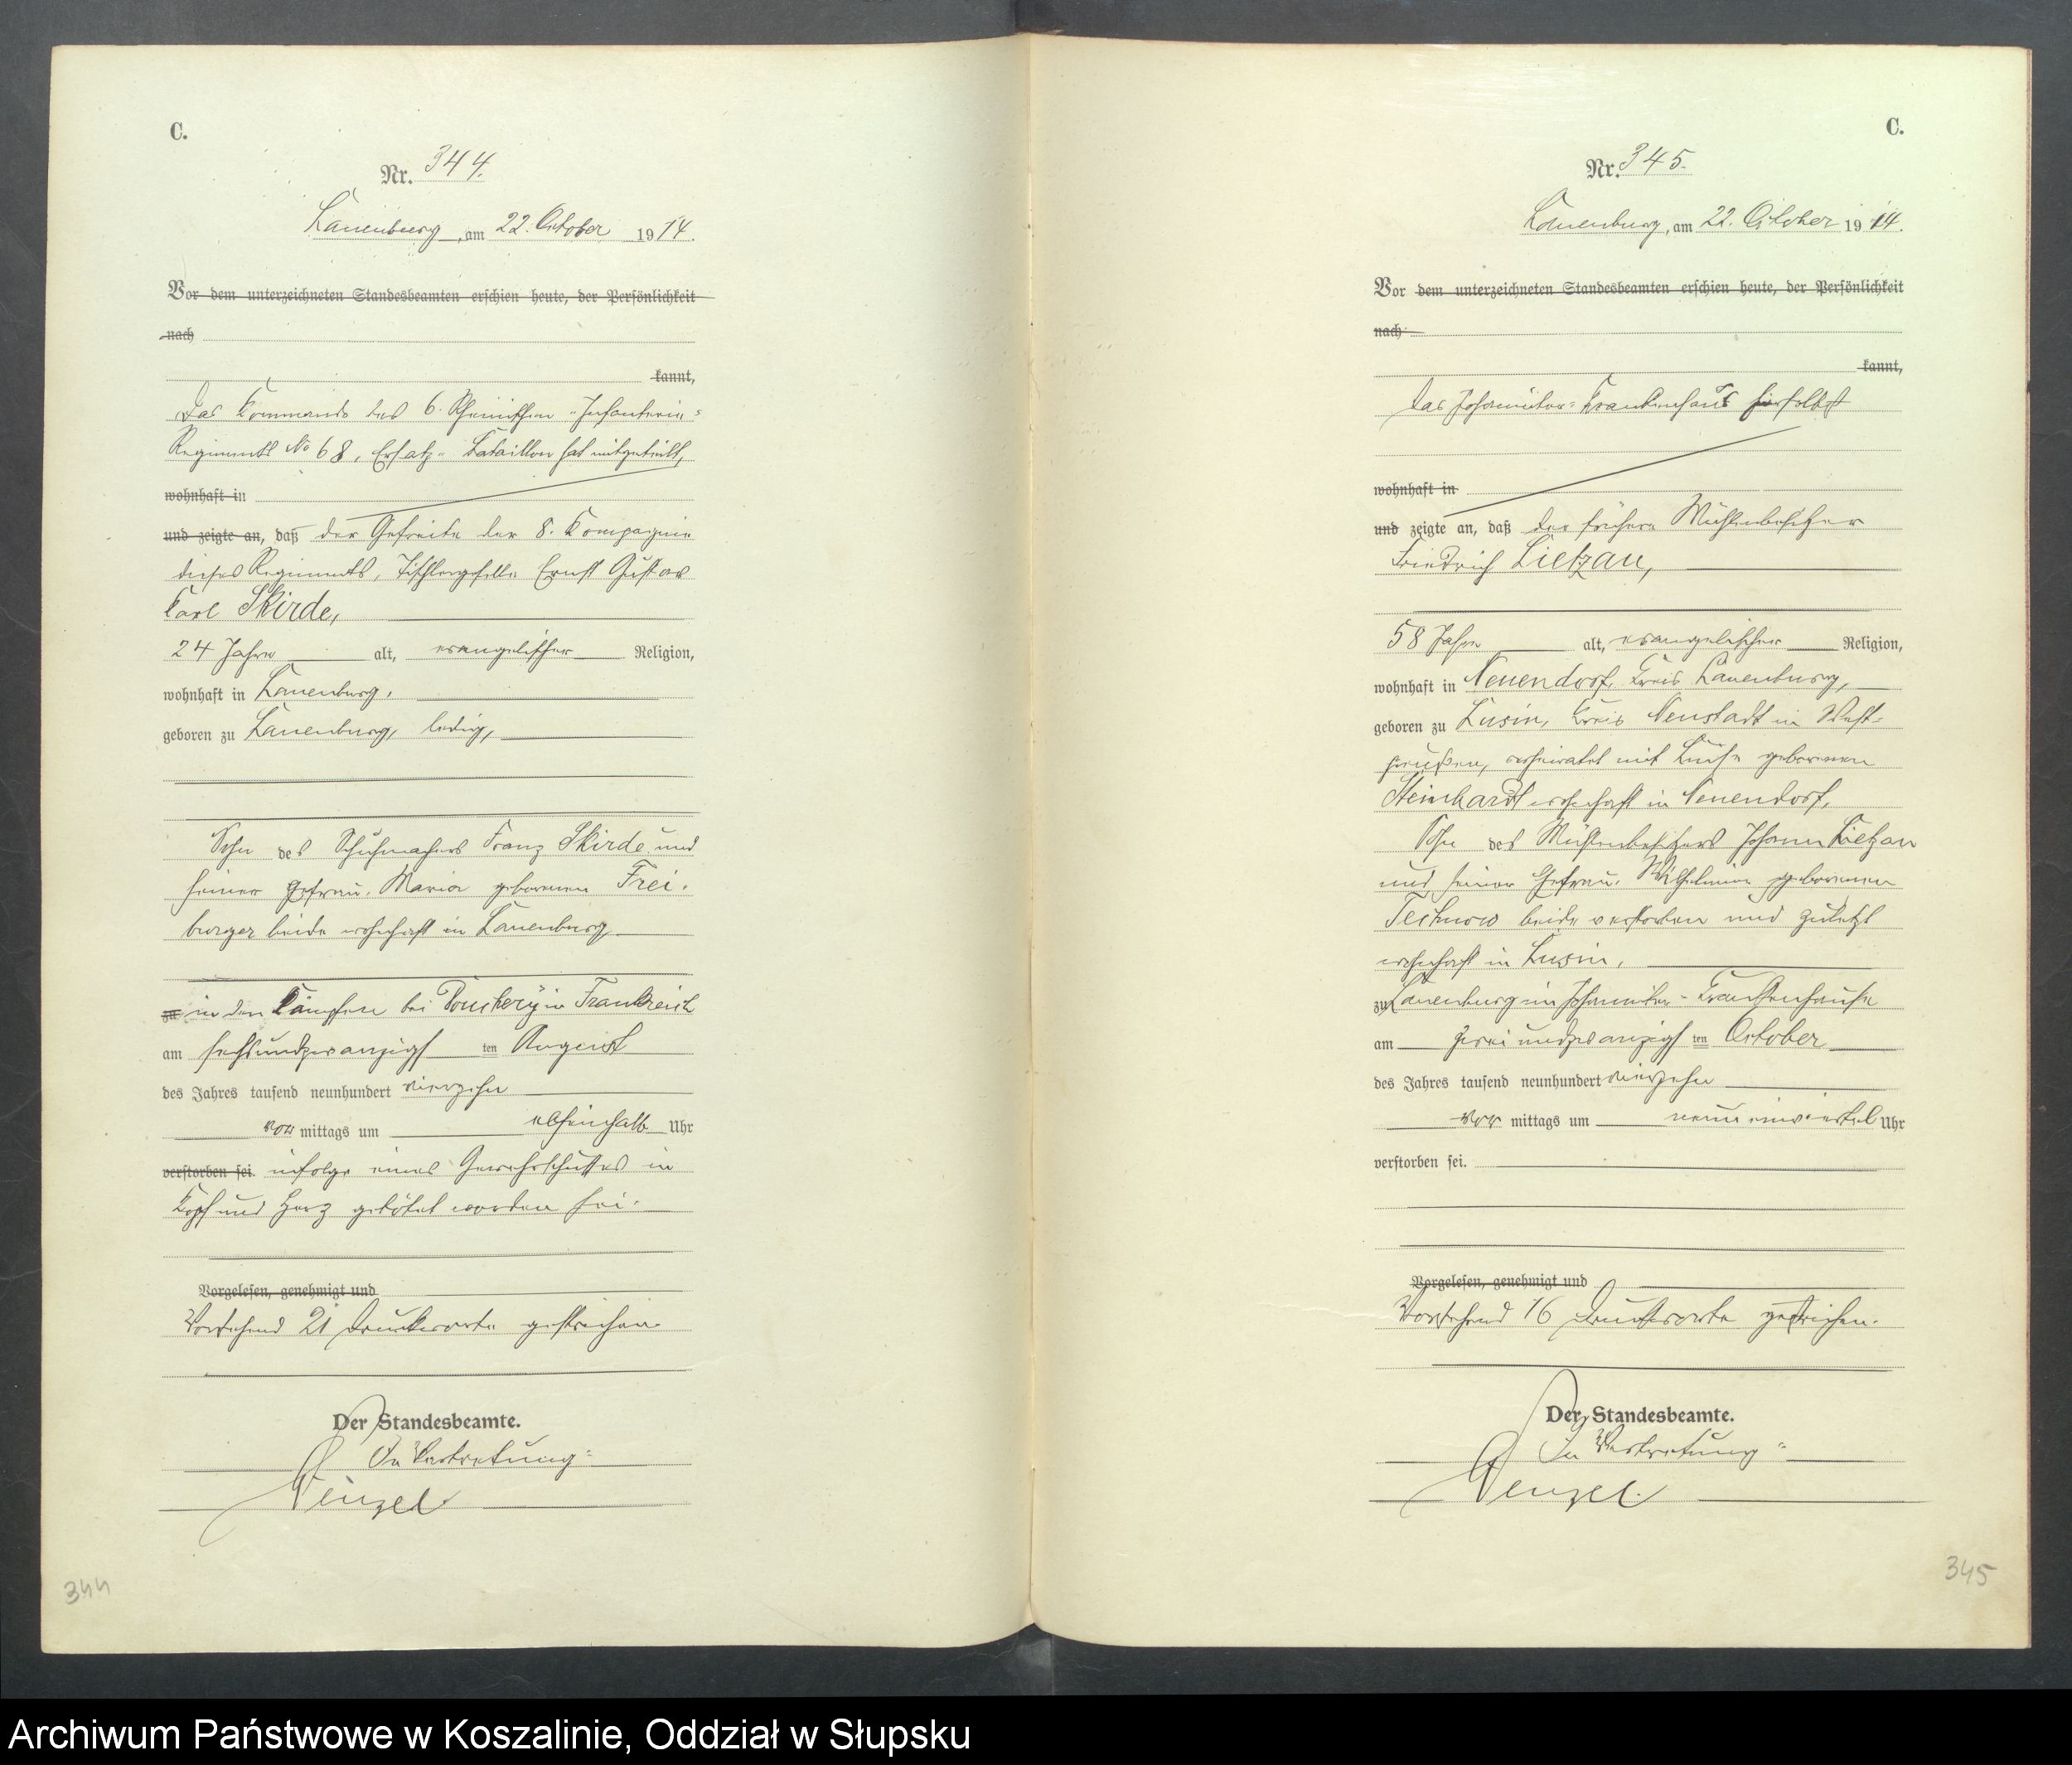 C.
Nr. 344.
Lauenburg, am 22. October 1914.
Vor dem unterzeichneten Standesbeamten erschien heute, der Persönlichkeit
nach
kannt,
Das Kommando des 6. Rheinischen Infanterie-
Regiments No 68, Ersatz-Bataillon hat mitgeteilt,
wohnhaft in
und zeigte an, daß der Gefreite der 8. Kompagnie
dieses Regiments, Tischlergeselle Ernst Gustav
Karl Skirde,
24 Jahre alt, evangelischer Religion,
wohnhaft in Lauenburg,
geboren zu Lauenburg, ledig,
Sohn des Schuhmachers Franz Skirde und
seiner Ehefrau, Maria geborenen Frei-
burger beide wohnhaft in Lauenburg
zu in den Kämpfen bei in Frankreich
am sechsundzwanzigsten August
des Jahres tausend neunhundert vierzehn
vor mittags um Uhr
verstorben sei infolge eines Gewehrschusses in
Kopf und Herz getötet worden sei.
Vorgelesen, genehmigt und
Vorstehend 21 Druckworte gestrichen.
Der Standesbeamte.
In Vertretung:
Wenzel
344
C.
Nr. 345.
Lauenburg, am 22. October 1914.
Vor dem unterzeichneten Standesbeamten erschien heute, der Persönlichkeit
nach
kannt,
Das Johanniter-Krankenhaus hierselbst
wohnhaft in
und zeigte an, daß der frühere Mühlenbesitzer
Friedrich Lietzau,
58 Jahre alt, evangelischer Religion,
wohnhaft in Neuendorf, Kreis Lauenburg,
geboren zu Lusin, Kreis Neustadt in West-
preußen, verheiratet mit Luise geborenen
Steinhardt wohnhaft in Neuendorf,
Sohn des Mühlenbesitzers Johann Lietzau
und seiner Ehefrau, Wilhelmine geborenen
beide verstorben und zuletzt
wohnhaft in Lusin,
zu Lauenburg im Johanniter-Krankenhause
am zweiundzwanzigsten October
des Jahres tausend neunhundert vierzehn
vor mittags um neun einviertel Uhr
verstorben sei.
Vorgelesen, genehmigt und
Vorstehend 16 Druckworte gestrichen.
Der Standesbeamte.
In Vertretung:
Wenzel.
345
Archiwum Państwowe w Koszalinie, Oddział w Słupsku